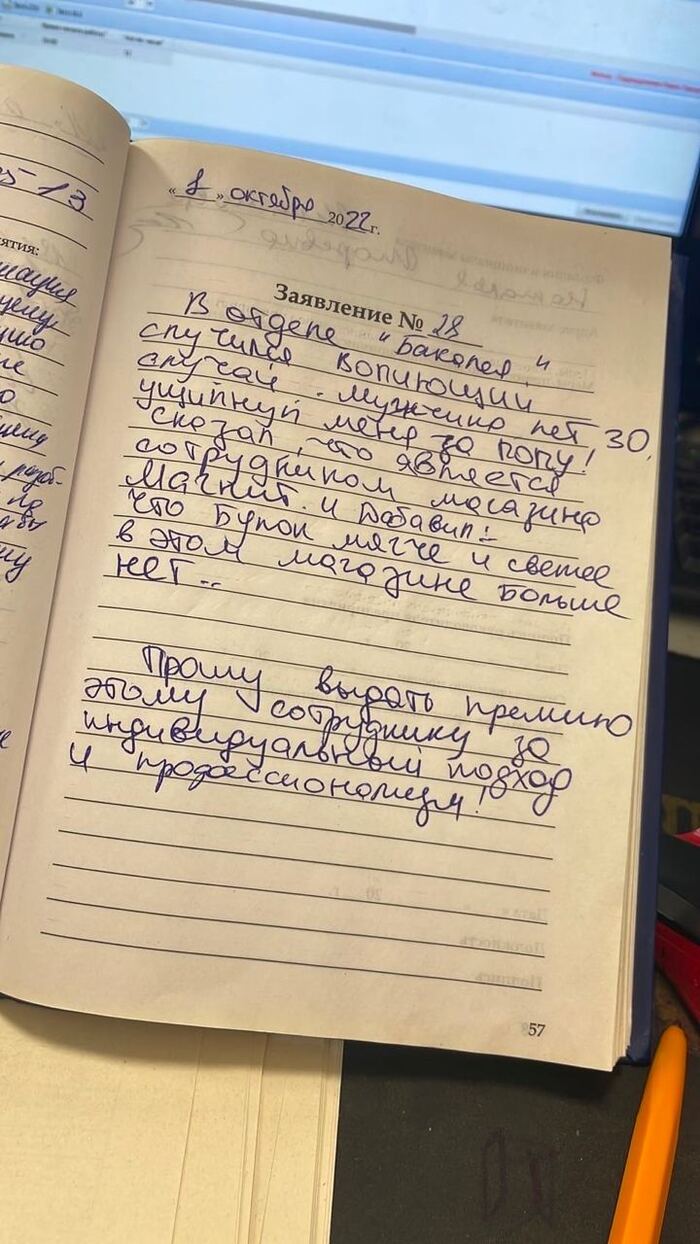 « 1 » октября 2022 г.
Заявление № 28
В отделе "Бакалея"
случился вопиющий
случай. Мужчина лет 30,
ущипнул меня за попу!
сказал, что является
сотрудником магазина
Магнит. и добавил:-
что Булок мягче и свежее
в этом магазине больше
нет..
Прошу выдать премию
этому сотруднику за
индивидуальный подход
и профессионализм!
57